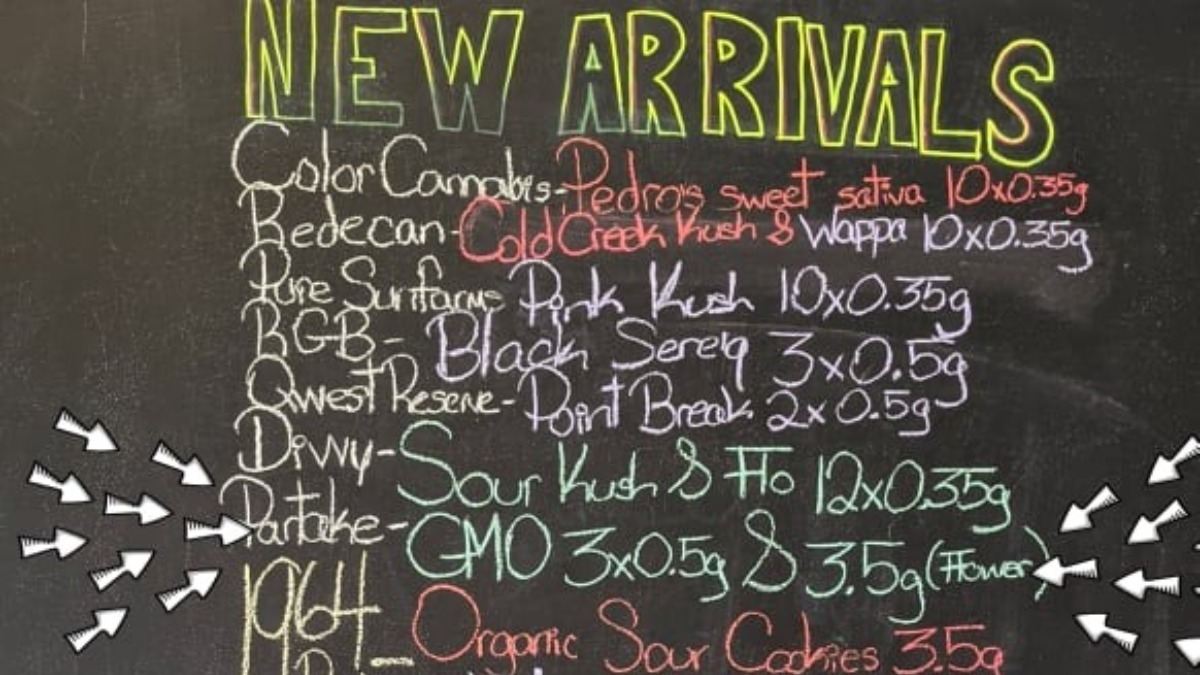 NEW ARRIVALS
Color Cannabis-Pedro's sweet sativa 10x0.35g
Redecan-Cold Creek Kush & Wappa 10x0.35g
Pure Sunfarms Pink Kush 10x0.35g
RGB- Black Sereig 3x0.5g
Qwest Reserve-Point Break 2x0.5g
Divvy-Sour Kush & 12x0.35g
Partake-GMO 3x0.5g & 3.5g (Flower)
1964- Organic Sour Cookies 3.5g